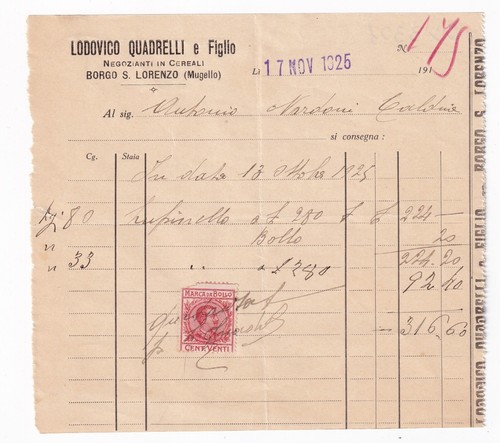 LODOVICO QUADRELLI e Figlio
NEGOZIANTI IN CEREALI
BORGO S. LORENZO (Mugello)
N. 175
Li 17 NOV 1925 191
Al sig. Antonio Nardoni Caldine
si consegna:
Cg. Staia
In data 13 Ottobre 1925
Kg 80 Lupinello a £ 280 £ £ 224 —
Bollo 20
224.20
" 33 " a £ 280 92 40
— 316.60
MARCA DA BOLLO
CENT. VENTI
BORGO S. LORENZO
LODOVICO QUADRELLI e FIGLIO